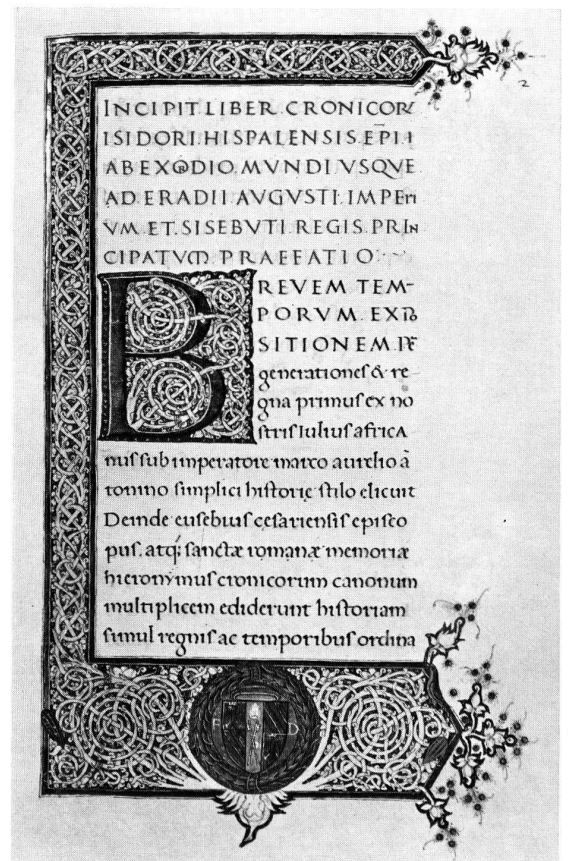 2
INCIPIT.LIBER.CRONICOR
ISIDORI.HISPALENSIS.EP̅I.I
AB EXODIO.MVNDI VSQVE
AD ERADII AVGUSTI.IMPERI
VM.ET.SISEBUTI REGIS.PRIN
CIPATVM.PRAEFATIO
BREVEM TEM-
PORVM.EXPO
SITIONEM.PER
generationes & re
gna primus ex no
stris Iulius africa
nus sub imperatore marco aurelio ā
tonino simplici historie stilo elicuit
Deinde eusebius cesariensis episco
pus. atq; sanctæ romanæ memoriæ
hieronymus cronicorum canonum
multiplicem ediderunt historiam
simul regnis ac temporibus ordina
F D